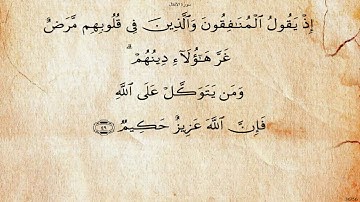 سورة الأنفال
إِذْ يَقُولُ ٱلْمُنَـٰفِقُونَ وَٱلَّذِينَ فِى قُلُوبِهِم مَّرَضٌ
غَرَّ هَـٰٓؤُلَآءِ دِينُهُمْ ۗ
وَمَن يَتَوَكَّلْ عَلَى ٱللَّهِ
فَإِنَّ ٱللَّهَ عَزِيزٌ حَكِيمٌ ﴿٤٩﴾